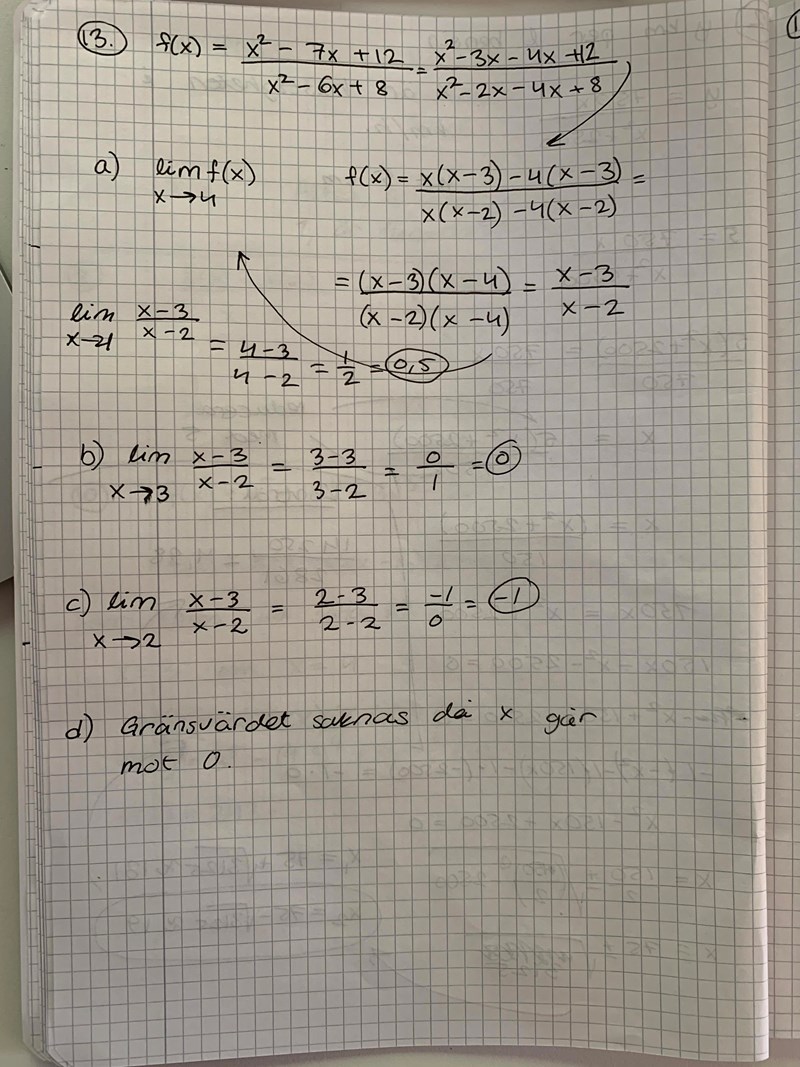 13. f(x) = (x² - 7x + 12)/(x² - 6x + 8) = (x² - 3x - 4x + 12)/(x² - 2x - 4x + 8)
a) lim x→4 f(x)
f(x) = (x(x-3) - 4(x-3))/(x(x-2) - 4(x-2)) =
= ((x-3)(x-4))/((x-2)(x-4)) = (x-3)/(x-2)
lim x→4 (x-3)/(x-2) = (4-3)/(4-2) = 1/2 = 0,5
b) lim x→3 (x-3)/(x-2) = (3-3)/(3-2) = 0/1 = 0
c) lim x→2 (x-3)/(x-2) = (2-3)/(2-2) = -1/0 = -1
d) Gränsvärdet saknas då x går
mot 0.